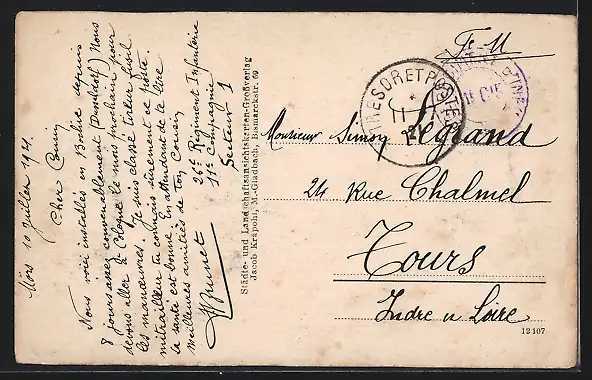 Mörs 10 Juillet 1921.
Cher
Nous voici installés en Bochie depuis
8 jours assez convenablement (Duysdorf) Nous
devons aller à Cologne le mois prochain pour
les manœuvres. Je suis classé tireur fusil
mitrailleur tu connais sûrement ce poste.
la santé est bonne. En attendant de te lire
meilleures amitiés de ton Cousin
26e Régiment Infanterie
11e Compagnie
Secteur 1
Städte- und Landschaftsansichtskarten-Großverlag
Jacob Krapohl, M.-Gladbach, Bismarckstr. 69
F.-M
TRESOR ET POSTES
11
Monsieur Simon Legrand
24 Rue Chalmel
Tours
Indre & Loire
12107